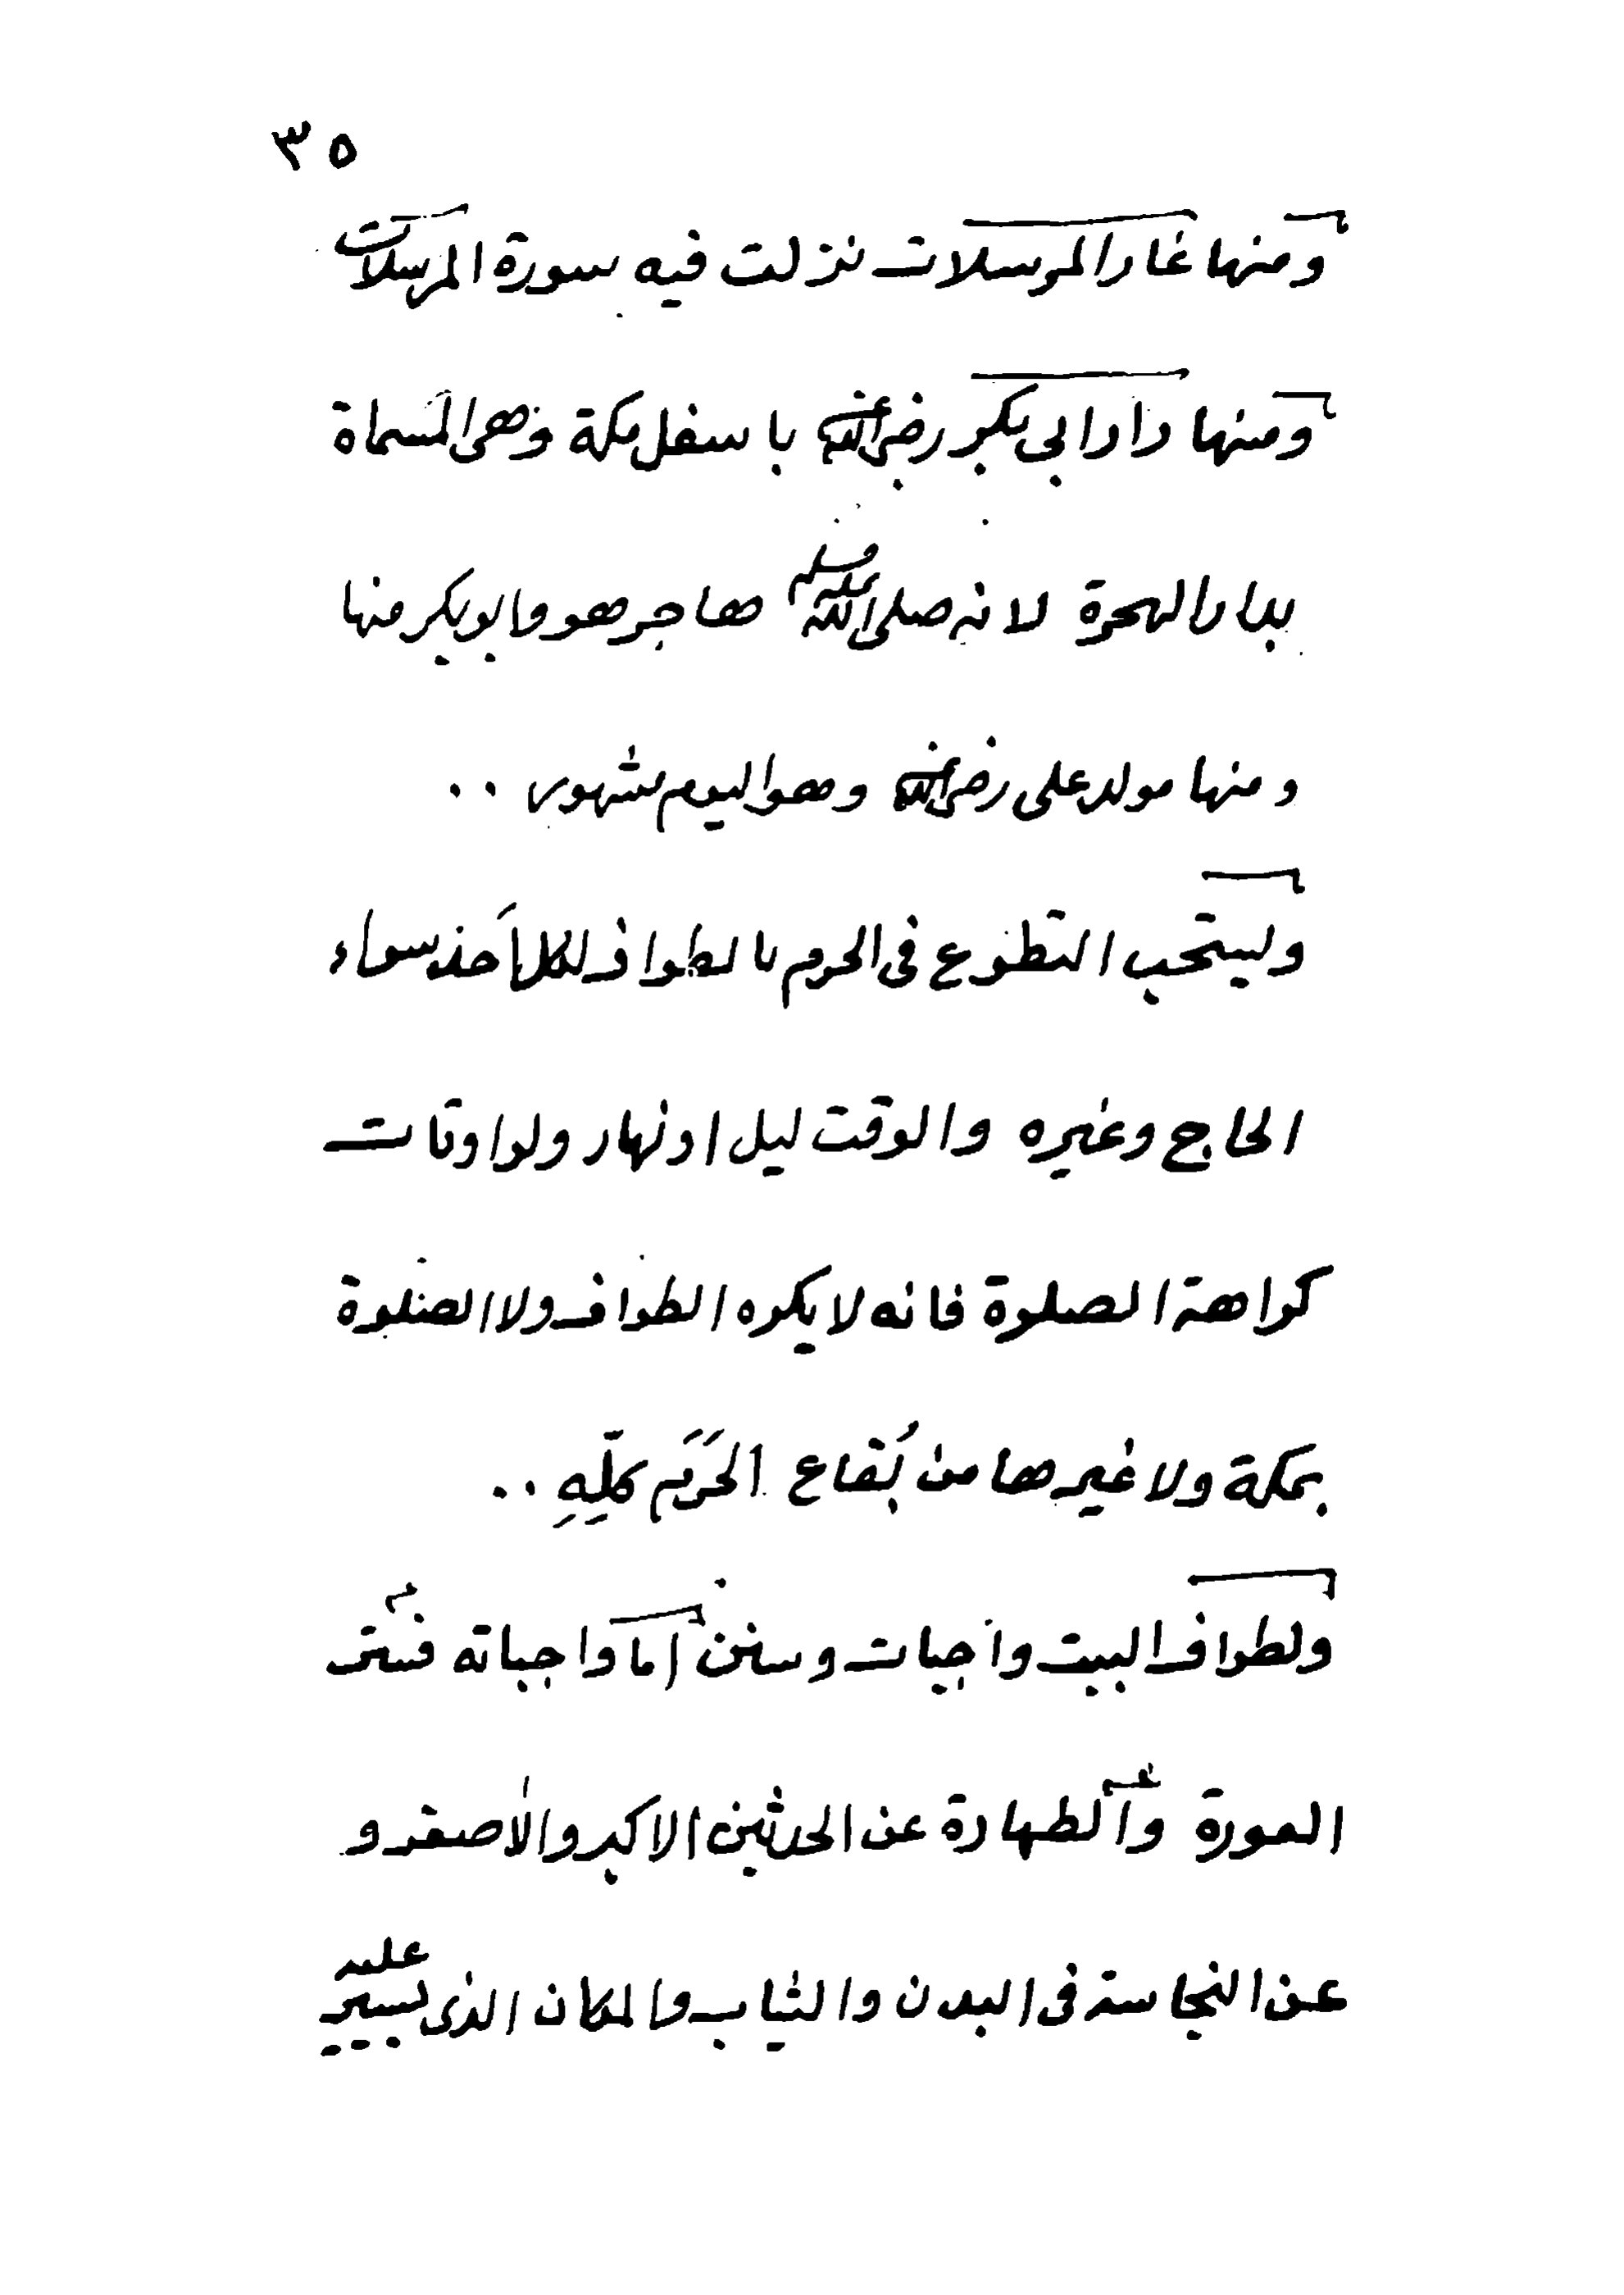 ٣٥
ومنها غار المرسلات نزلت فيه سورة المرسلات
ومنها دار ابي بكر رضي الله عنه باسفل مكة وهي المسماة
بدار الهجرة لانه صلى الله عليه وسلم هاجر هو وابو بكر منها
ومنها مولد علي رضي الله عنه وهو اليوم مشهور ..
ويستحب التطوع في الحرم بالطواف لكل أحد سواء
الحاج وغيره والوقت ليل او نهار ولو اوقات
كراهة الصلوة فانه لا يكره الطواف ولا الصلوة
بمكة ولا غيرها من بُقاع الحَرَم كلِّهِ ..
ولطواف البيت واجبات وسنن اما واجباته فستر
العورة والطهارة عن الحدثين الاكبر والاصغر و
عن النجاسة في البدن والثياب والمكان الذي يسير عليه